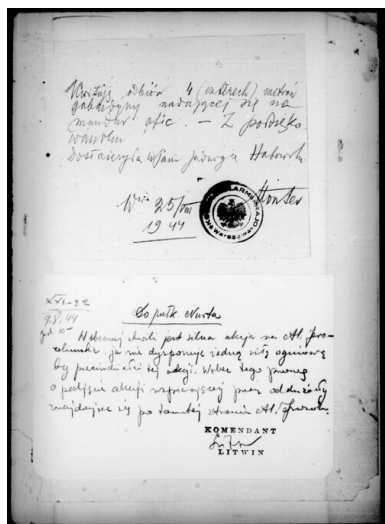 Kwituję odbiór 4 (czterech) metrów
gabardyny nadającej się na
mundur ofic. — Z podzięko
waniem
Dostarczyła W Pani Jadwiga
W-wa 25/VIII
1944
XXI-22
9.8.44
god. 10
Do pułk. Nurta
W obecnej chwili jest silna akcja na Al. Jero-
zolimskie ja nie dysponuję żadną siłą ogniową
by przeciwdziałać tej akcji. Wobec tego proszę
o podjęcie akcji wspierającej przez oddziały
znajdujące się po tamtej stronie Al. Jerozol.
KOMENDANT
LITWIN